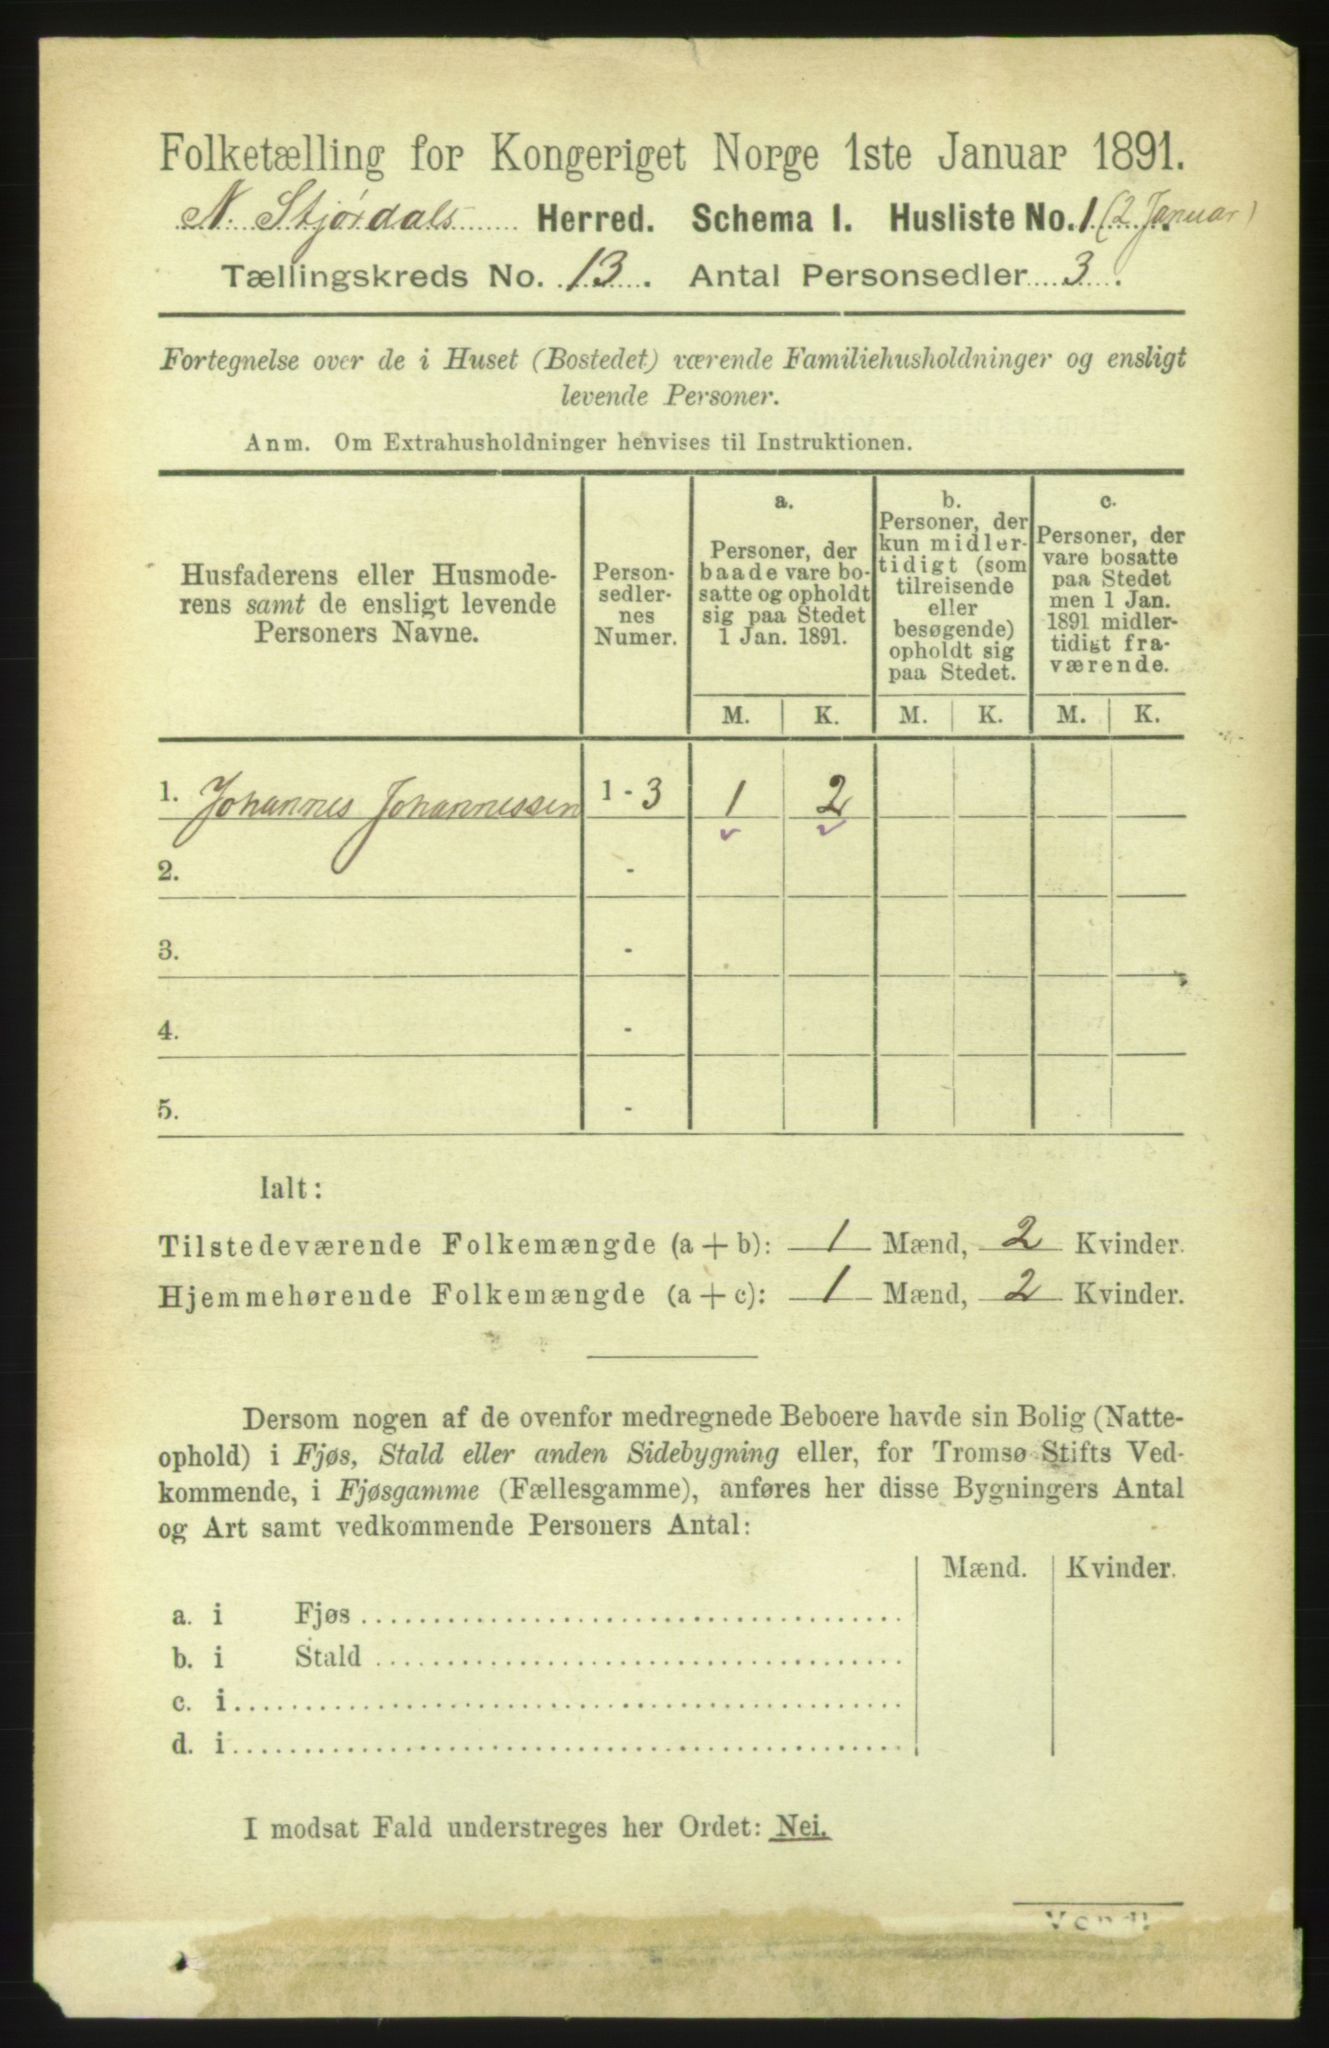 Folketælling for Kongeriget Norge 1ste Januar 1891.
N. Stjørdals Herred. Schema I. Husliste No. 1 (2 Januar)
Tællingskreds No. 13. Antal Personsedler 3.
Fortegnelse over de i Huset (Bostedet) værende Familiehusholdninger og ensligt
levende Personer.
Anm. Om Extrahusholdninger henvises til Instruktionen.
Husfaderens eller Husmode-
rens samt de ensligt levende
Personers Navne.
Person-
sedler-
nes
Numer.
a.
Personer, der
baade vare bo-
satte og opholdt
sig paa Stedet
1 Jan. 1891.
b.
Personer, der
kun midler-
tidigt (som
tilreisende
eller
besøgende)
opholdt sig
paa Stedet.
c.
Personer, der
vare bosatte
paa Stedet
men 1 Jan.
1891 midler-
tidigt fra-
værende.
M. K. M. K. M. K.
1. Johannes Johannessen 1 - 3 1 2
2. -
3. -
4. -
5. -
Ialt:
Tilstedeværende Folkemængde (a + b): 1 Mænd, 2 Kvinder.
Hjemmehørende Folkemængde (a + c): 1 Mænd, 2 Kvinder.
Dersom nogen af de ovenfor medregnede Beboere havde sin Bolig (Natte-
ophold) i Fjøs, Stald eller anden Sidebygning eller, for Tromsø Stifts Ved-
kommende, i Fjøsgamme (Fællesgamme), anføres her disse Bygningers Antal
og Art samt vedkommende Personers Antal:
Mænd. Kvinder.
a. i Fjøs
b. i Stald
c. i
d. i
I modsat Fald understreges her Ordet: Nei.
Vend!